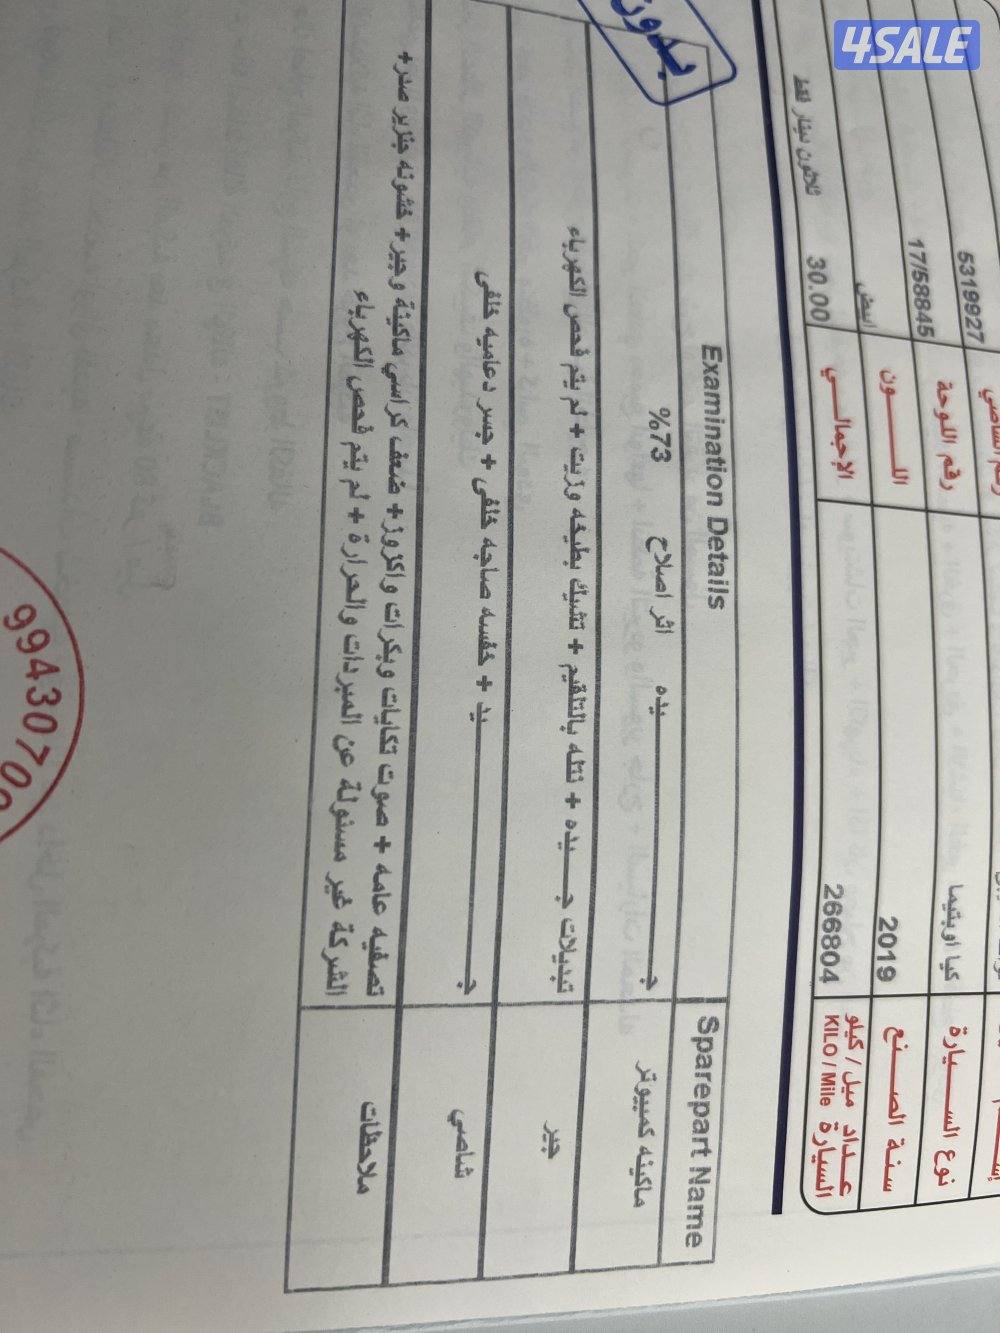 4SALE
5319927
نوع السيارة كيا اوبتيما رقم اللوحة 17/58845
سنة الصنع 2019 اللون ابيض
عداد ميل / كيلو السيارة KILO / Mile 266804 الإجمالي 30.00 ثلاثون دينار فقط
بدون
Sparepart Name Examination Details
ماكينه كمبيوتر جيده اثر اصلاح 73%
جير تبديلات جيده + نتله بالتلقيم + تشيك بطيخه وزيت + لم يتم فحص الكهرباء
شاصي جيد + خفسه صاجه خلفى + جسر دعاميه خلفى
ملاحظات تصفيه عامه + صوت تكايات وبكرات واكزوز + ضعف كراسي ماكينة وجير + خشونه جنزير صدر +
الشركة غير مسئولة عن المبردات والحرارة + لم يتم فحص الكهرباء